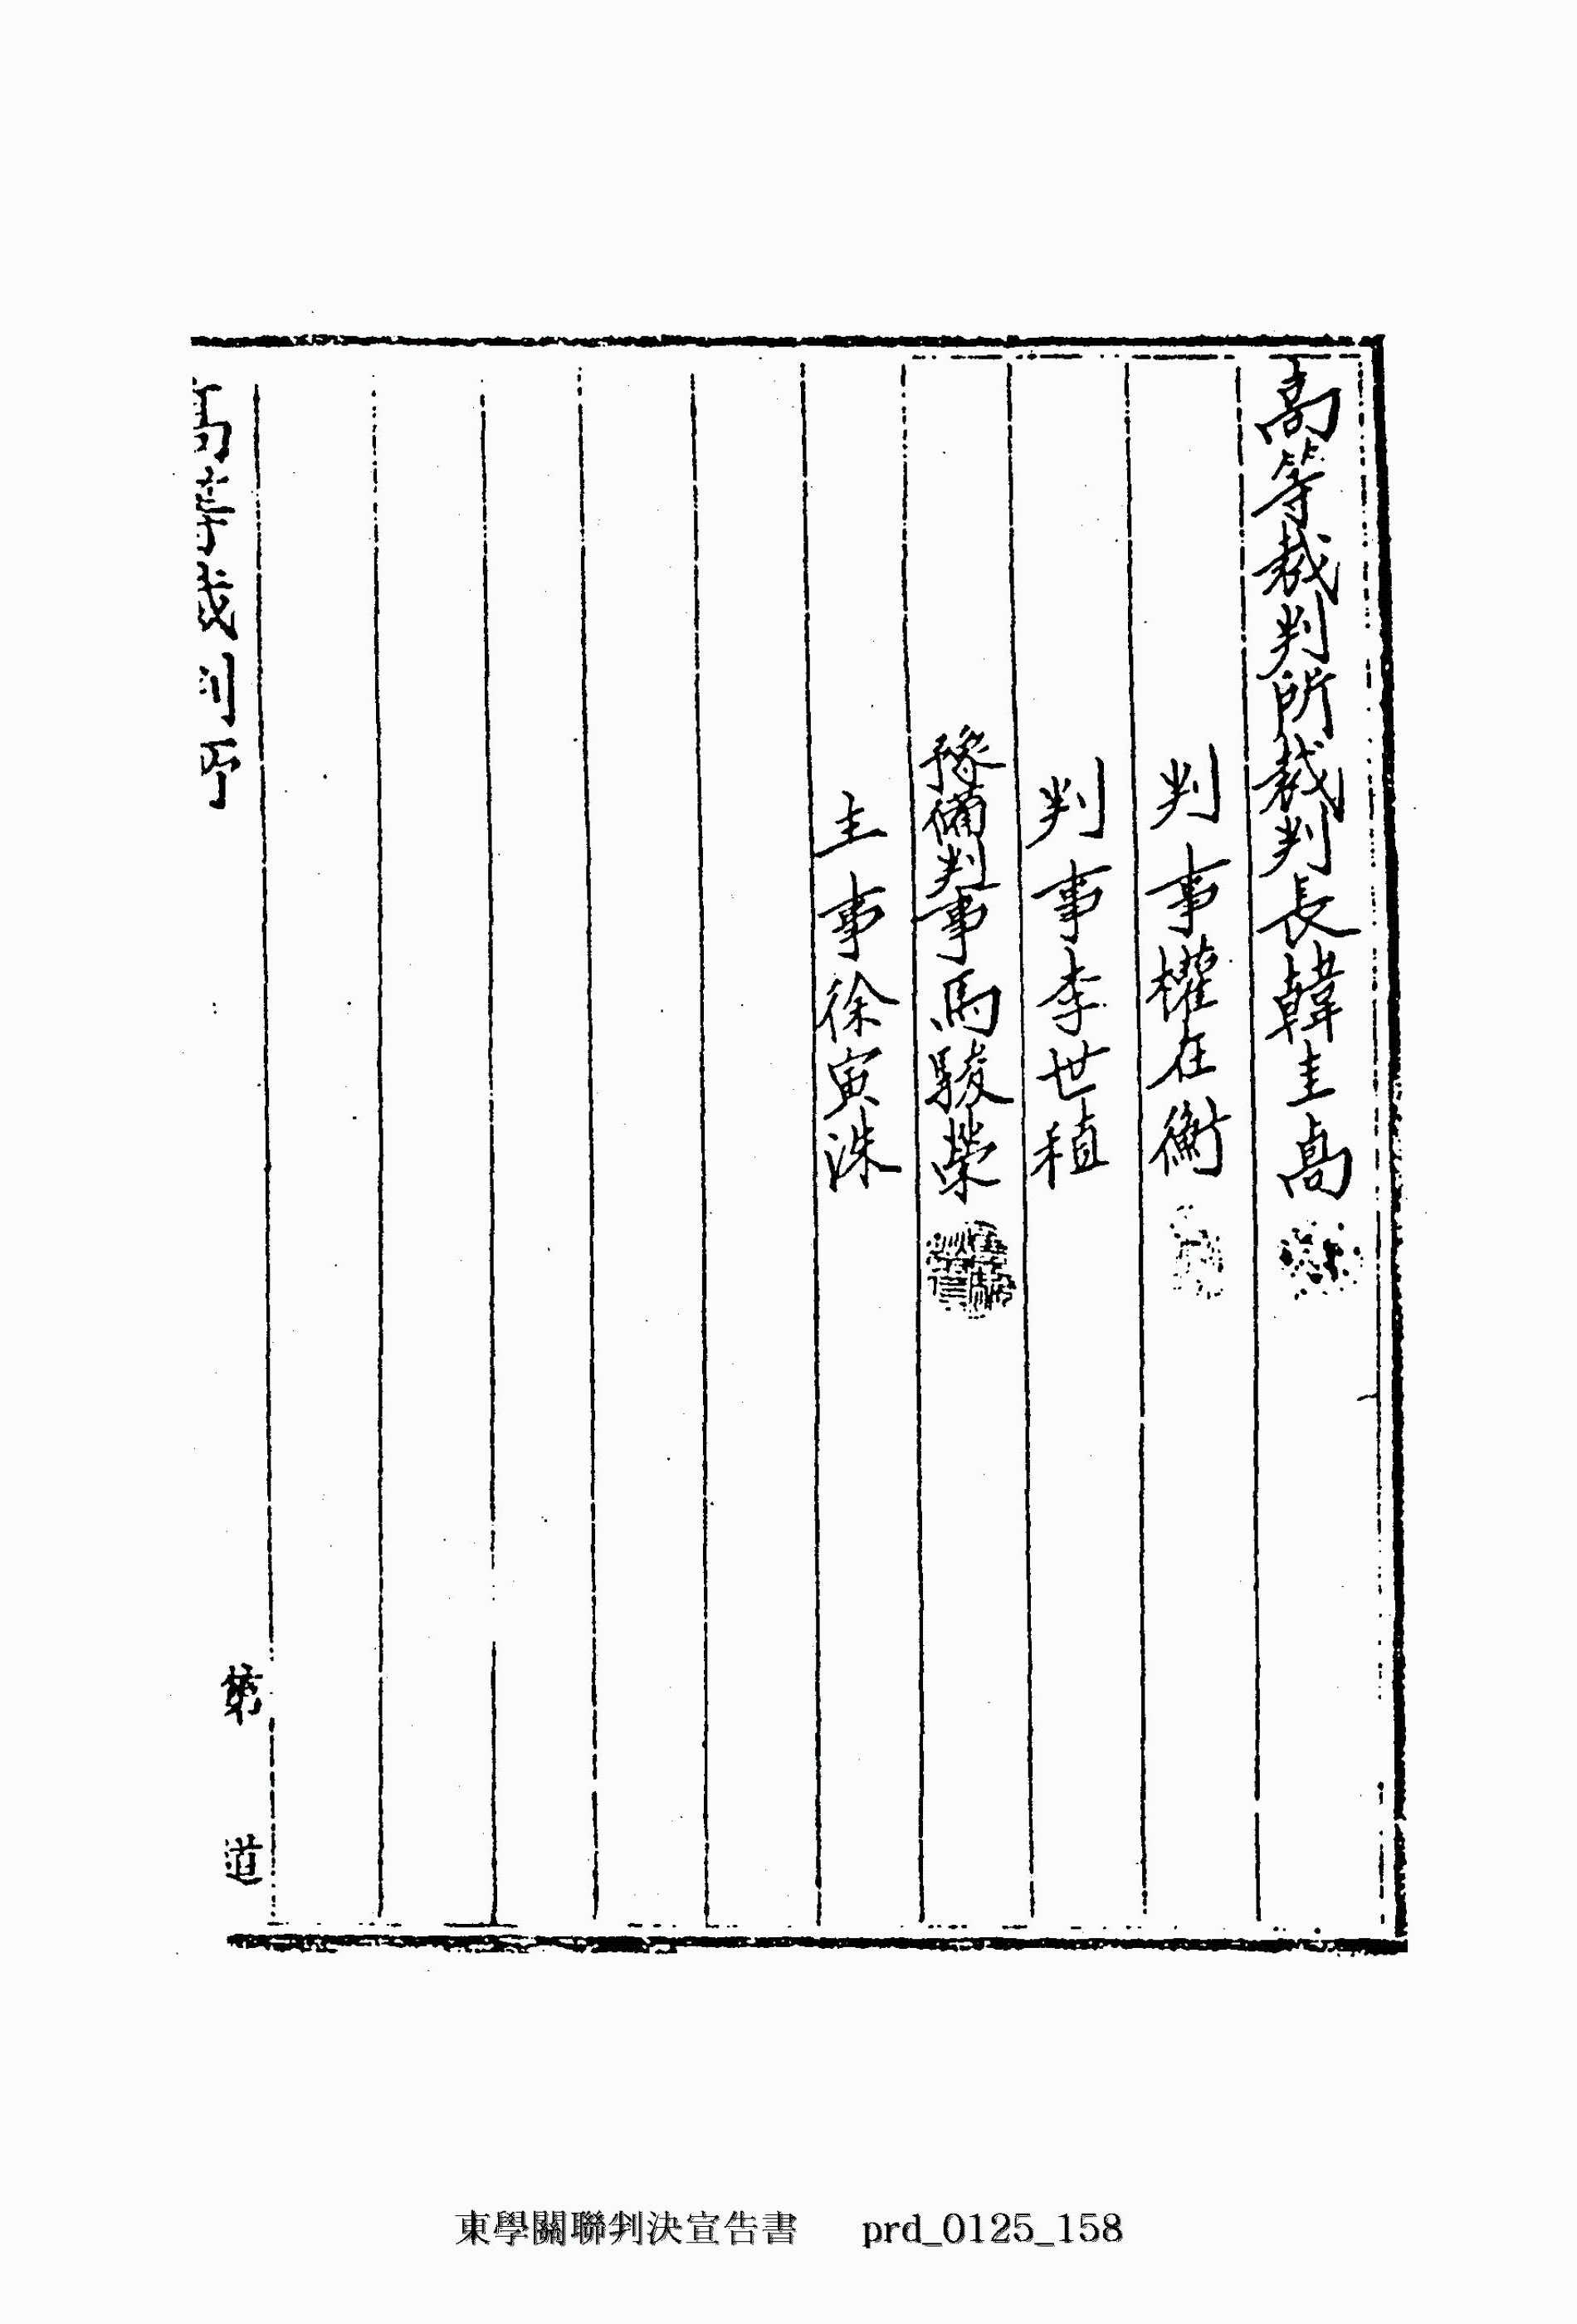 高等裁判所裁判長韓圭卨
判事權在衡
判事李世稙
豫備判事馬駿榮
主事徐寅洙
高等裁判所
第 道
東學關聯判決宣告書 prd_0125_158